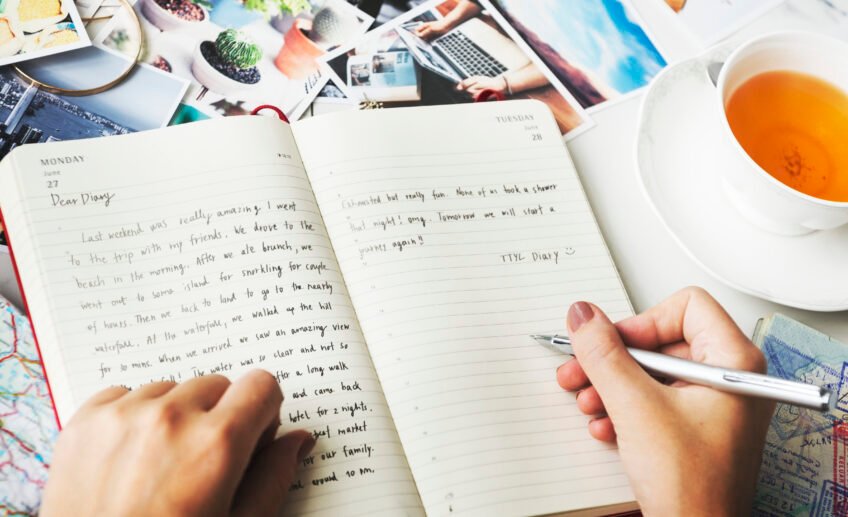 MONDAY
June
27
Dear Diary
Last weekend was really amazing. I went
to the trip with my friends. We drove to the
beach in the morning. After we ate brunch, we
went out to some island for snorkling for couple
of hours. Then we back to land to go to the nearby
waterfall. At the waterfall, we walked up the hill
for 30 mins. When we arrived we saw an amazing view
waterfall. The water was so clear and not so
after a long walk
and came back
hotel for 2 nights.
market
for our family.
around 10 pm.
TUESDAY
June
28
Exhausted but really fun. None of us took a shower
that night! omg. Tomorrow we will start a
journey again!!
TTYL Diary